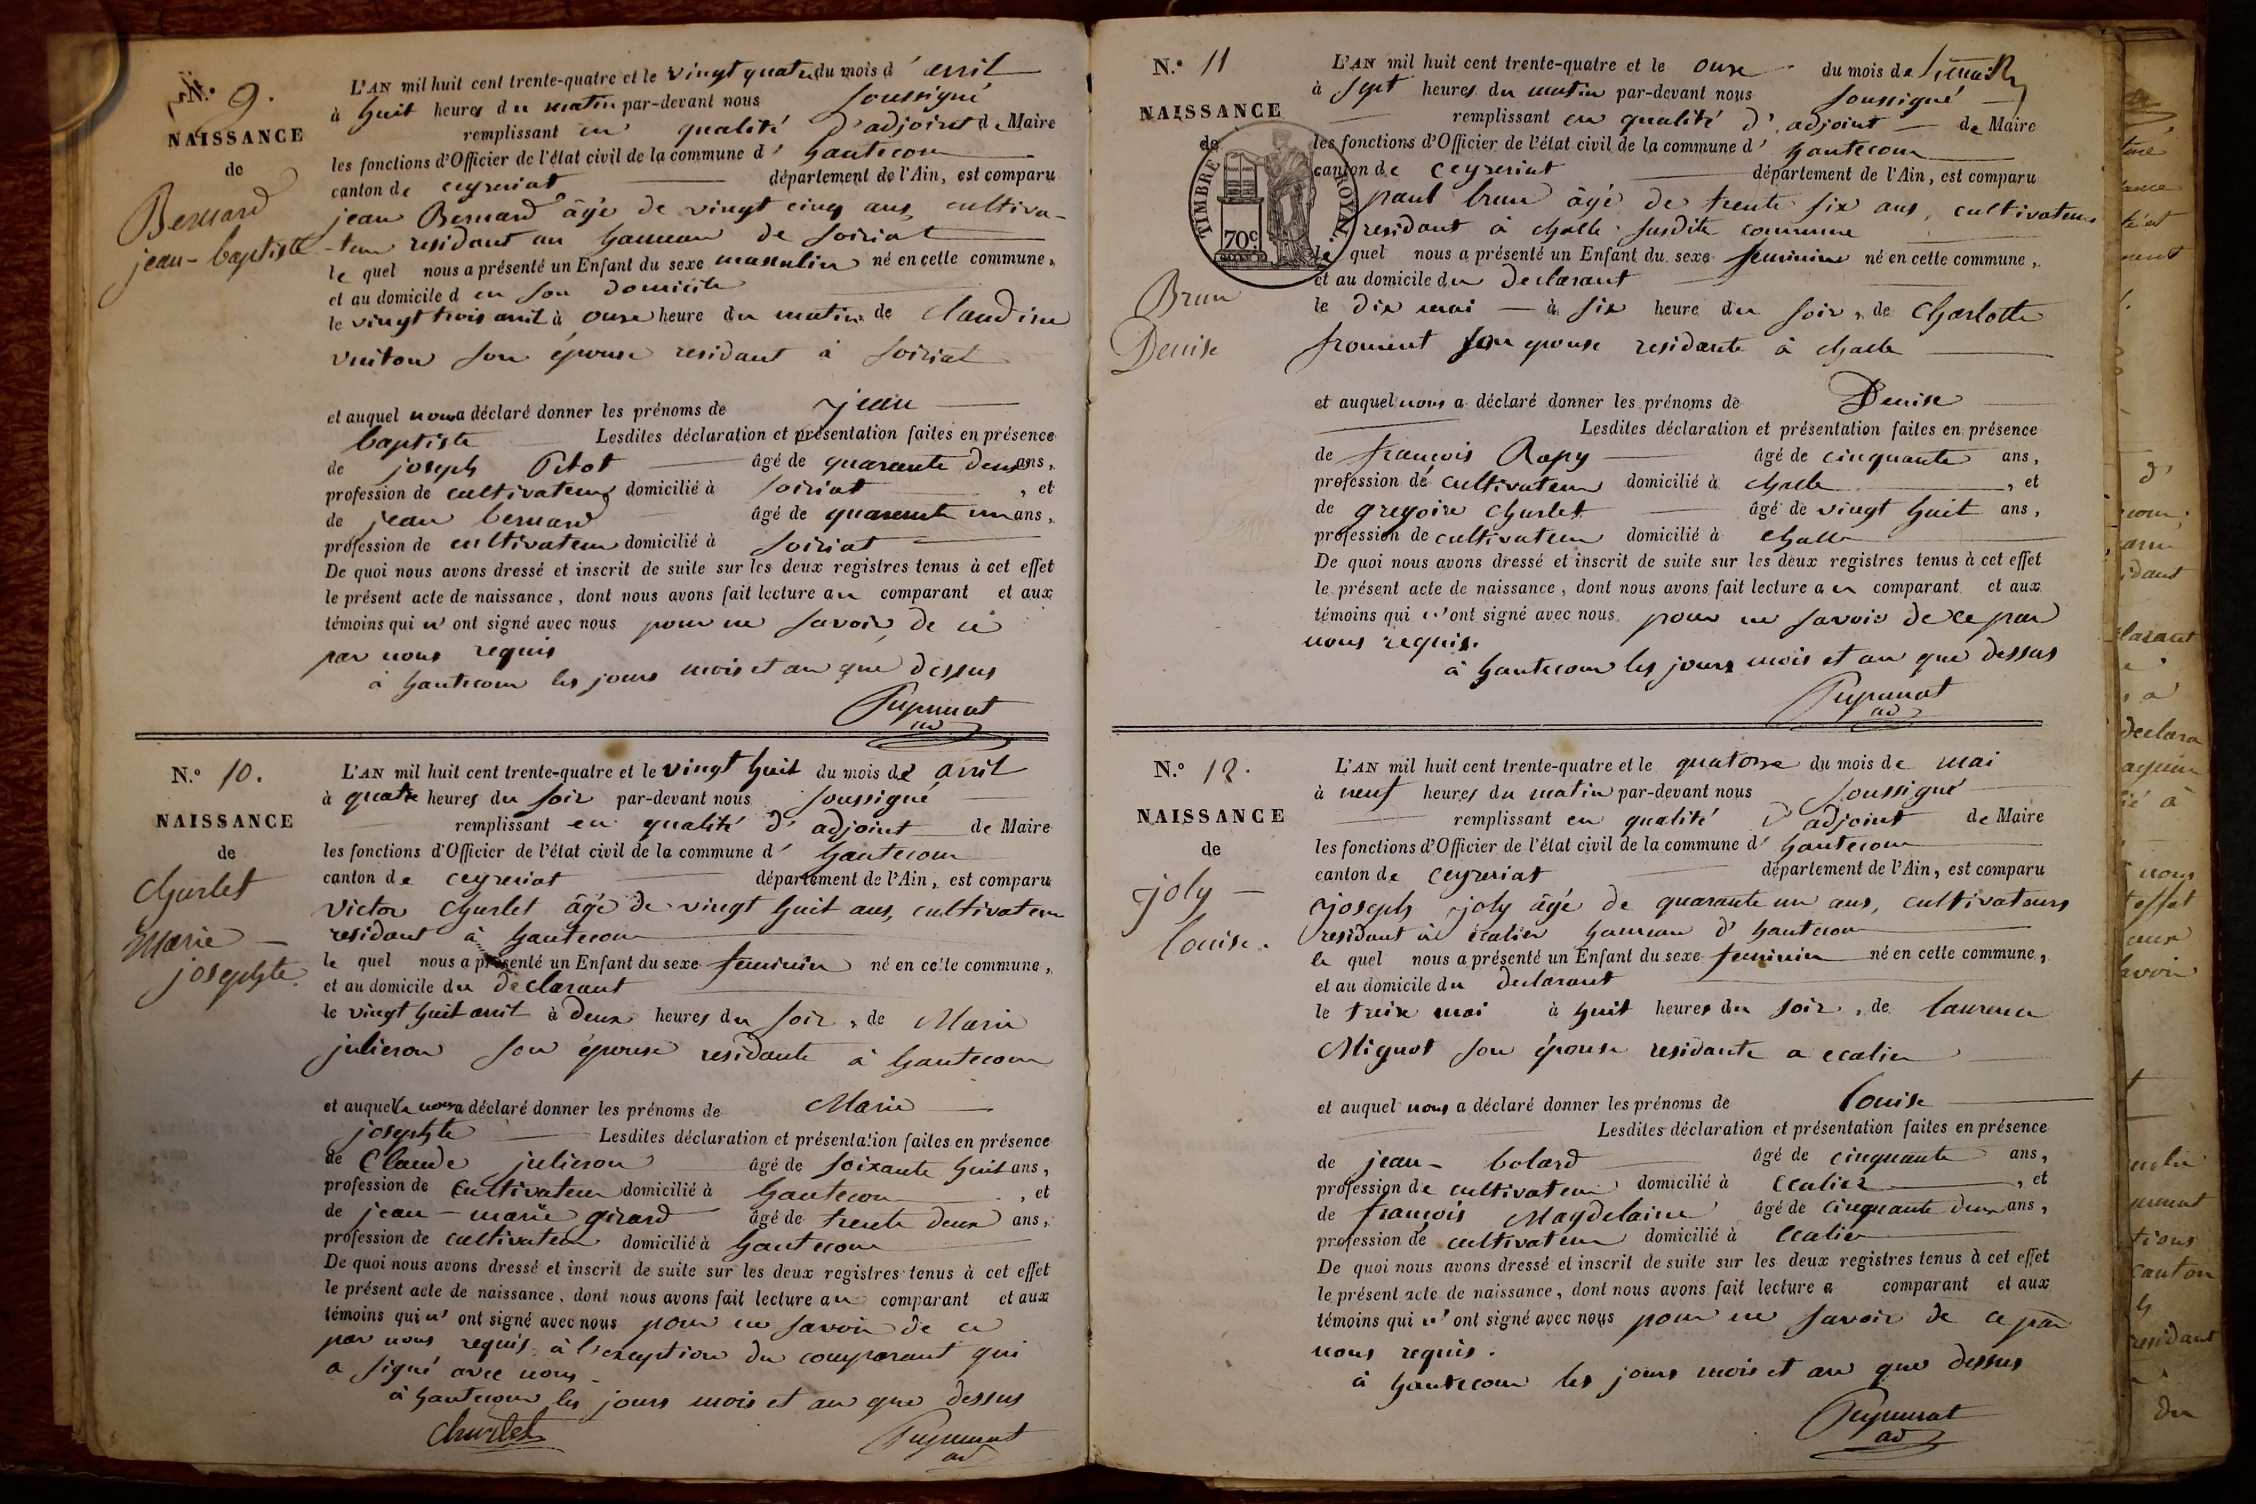 N.° 9.
NAISSANCE
de
Bernard
jean-baptiste
L'AN mil huit cent trente-quatre et le vingt quatre du mois d' avril
à huit heures du matin par-devant nous soussigné
remplissant en qualité d'adjoint de Maire
les fonctions d'Officier de l'état civil de la commune d' hautecour
canton de ceyzeriat département de l'Ain, est comparu
jean Bernard âgé de vingt cinq ans, cultiva-
-teur residant au hameau de soiriat
le quel nous a présenté un Enfant du sexe masculin né en cette commune,
et au domicile d en son domicile
le vingt trois avril à onze heure du matin de claudine
vuiton son épouse residant à soiriat
et auquel nous a déclaré donner les prénoms de jean
baptiste Lesdites déclaration et présentation faites en présence
de joseph Pitot âgé de quarante deux ans,
profession de cultivateur domicilié à soiriat , et
de jean bernard âgé de quarente un ans,
profession de cultivateur domicilié à soiriat
De quoi nous avons dressé et inscrit de suite sur les deux registres tenus à cet effet
le présent acte de naissance, dont nous avons fait lecture au comparant et aux
témoins qui n' ont signé avec nous pour ne savoir de ce
par nous requis
à hautecour les jours mois et an que dessus
ad
N.° 10.
NAISSANCE
de
Churlet
Marie
josephte
L'AN mil huit cent trente-quatre et le vingt huit du mois de avril
à quatre heures du soir par-devant nous soussigné
remplissant en qualité d' adjoint de Maire
les fonctions d'Officier de l'état civil de la commune d' hautecour
canton de ceyzeriat département de l'Ain, est comparu
Victor Churlet âgé de vingt huit ans, cultivateur
residant à hautecour
le quel nous a présenté un Enfant du sexe feminin né en cette commune,
et au domicile du déclarant
le vingt huit avril à deux heures du soir, de Marie
julieron son épouse residante à hautecour
et auquel nous a déclaré donner les prénoms de Marie
josephte Lesdites déclaration et présentation faites en présence
de Claude julieron âgé de soixante huit ans,
profession de cultivateur domicilié à hautecour , et
de jean-marie girard âgé de trente deux ans,
profession de cultivateur domicilié à hautecour
De quoi nous avons dressé et inscrit de suite sur les deux registres tenus à cet effet
le présent acte de naissance, dont nous avons fait lecture au comparant et aux
témoins qui n' ont signé avec nous pour ne savoir de ce
par nous requis à l'exception du comparant qui
a signé avec nous.
à hautecour les jours mois et an que dessus
Churlet
ad
N.° 11
NAISSANCE
de
TIMBRE ROYAL
70c
Brun
Denise
L'AN mil huit cent trente-quatre et le onze du mois de
à sept heures du matin par-devant nous soussigné
remplissant en qualité d' adjoint de Maire
les fonctions d'Officier de l'état civil de la commune d' hautecour
canton de ceyzeriat département de l'Ain, est comparu
paul brun âgé de trente six ans, cultivateur
residant à challe susdite commune
le quel nous a présenté un Enfant du sexe feminin né en cette commune,
et au domicile du declarant
le dix mai à six heure du soir, de Charlotte
froment son epouse residante à challe
et auquel nous a déclaré donner les prénoms de Denise
Lesdites déclaration et présentation faites en présence
de françois Rapy âgé de cinquante ans,
profession de cultivateur domicilié à challe , et
de gregoire Churlet âgé de vingt huit ans,
profession de cultivateur domicilié à challe
De quoi nous avons dressé et inscrit de suite sur les deux registres tenus à cet effet
le présent acte de naissance, dont nous avons fait lecture au comparant et aux
témoins qui n' ont signé avec nous pour ne savoir de ce par
nous requis.
à hautecour les jours mois et an que dessus
ad
N.° 12.
NAISSANCE
de
joly
louise.
L'AN mil huit cent trente-quatre et le quatorze du mois de mai
à neuf heures du matin par-devant nous soussigné
remplissant en qualité d' adjoint de Maire
les fonctions d'Officier de l'état civil de la commune d' hautecour
canton de ceyzeriat département de l'Ain, est comparu
joseph joly âgé de quarante un ans, cultivateurs
residant à écalier hameau d' hautecour
le quel nous a présenté un Enfant du sexe feminin né en cette commune,
et au domicile du declarant
le treize mai à huit heures du soir, de laurence
Mignot son épouse residante a ecalier
et auquel nous a déclaré donner les prénoms de louise
Lesdites déclaration et présentation faites en présence
de jean- bolard âgé de cinquante ans,
profession de cultivateur domicilié à Ecalier , et
de françois Magdelaine âgé de cinquante deux ans,
profession de cultivateur domicilié à Ecalier
De quoi nous avons dressé et inscrit de suite sur les deux registres tenus à cet effet
le présent acte de naissance, dont nous avons fait lecture a comparant et aux
témoins qui n' ont signé avec nous pour ne savoir de ce par
nous requis.
à hautecour les jours mois et an que dessus
ad